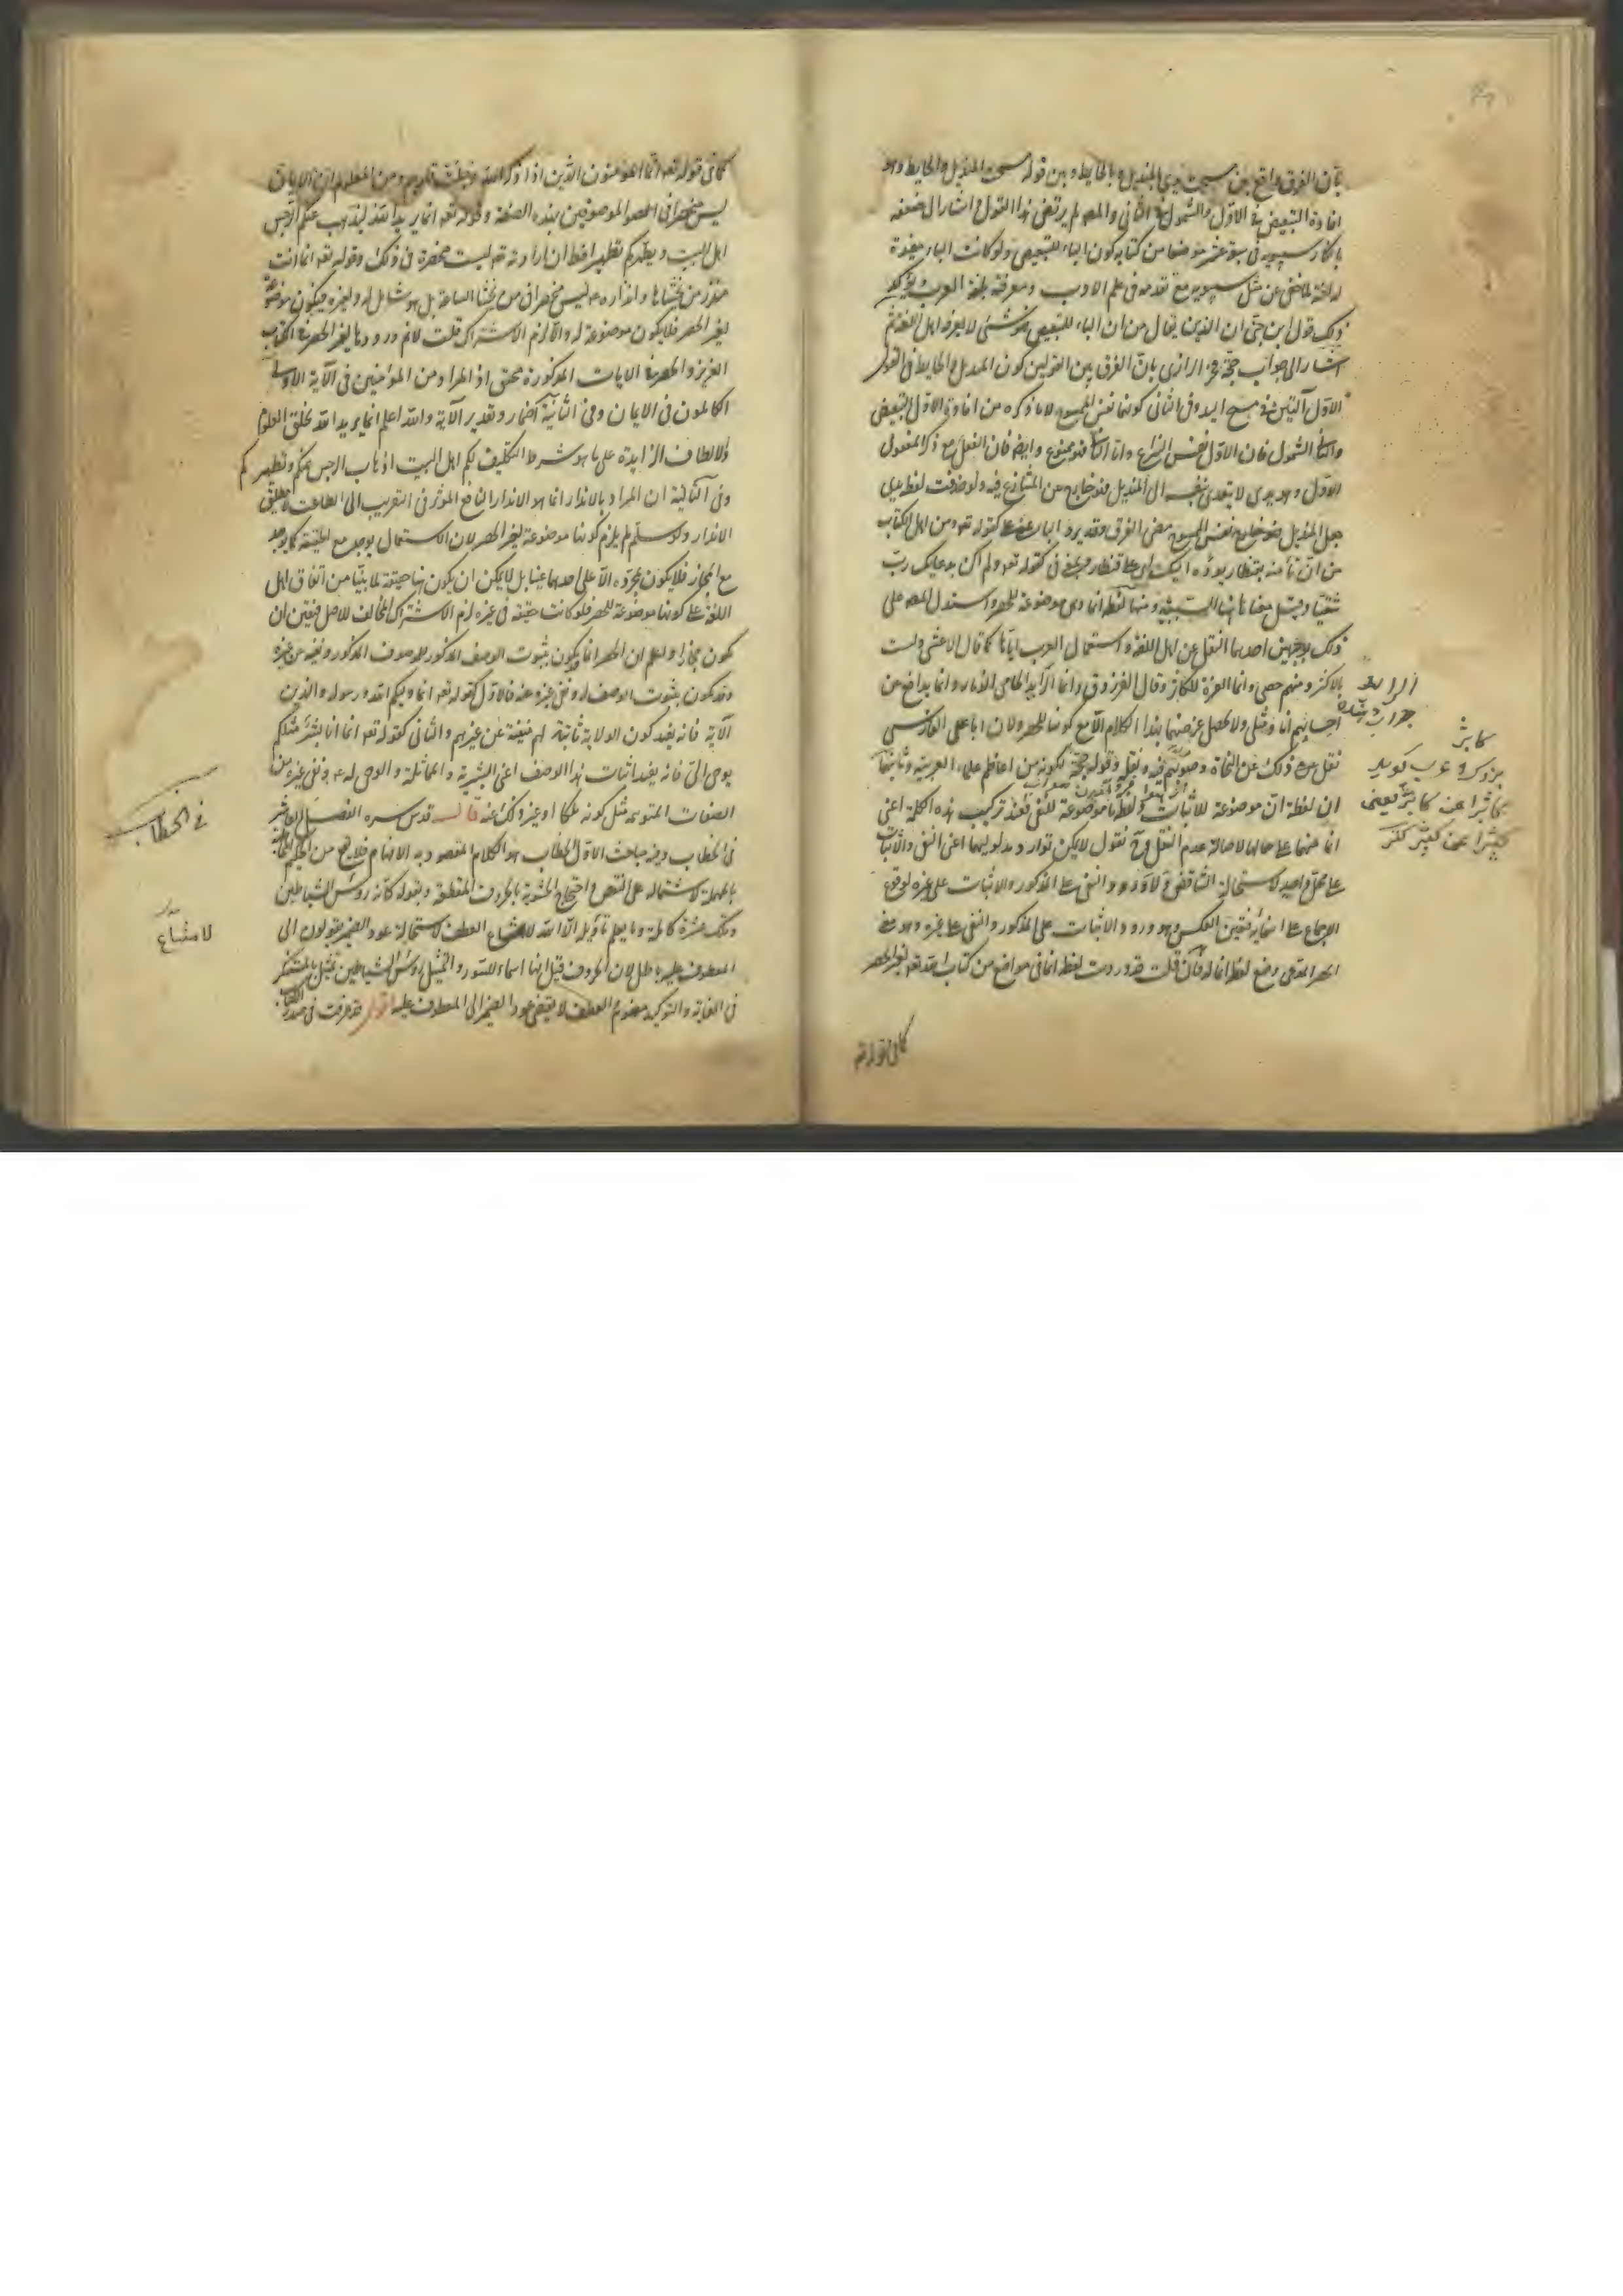 بأن الفرق واقع بين مسحت يدي بالمنديل وبالحايط وبين قوله مسحت المنديل والحايط وهو
افادة التبعيض في الاول والشمول في الثاني والمصـ لم يرتض هذا القول واشار الى ضعفه
بانكار سيبويه في سبعة عشر موضعا من كتابه كون الباء للتبعيض ولو كانت الباء مفيدة
له لغة لما خفي عن مثل سيبويه مع تقدمه في علم الادب ومعرفته بلغة العرب ويؤكد
ذلك قول ابن جني ان الذي يقال من ان الباء للتبعيض هو شيء لا يعرفه اهل اللغة ثم
اشار الى جواب حجة فخر الرازي بان الفرق بين القولين كون المنديل والحايط في القول
الاول آلتين في مسح اليد وفي الثاني كونهما نفس الممسوح لا ما ذكره من افادة الاول التبعيض
والثاني الشمول فان الاول نفس النزاع واما الثاني فممنوع وايضا فان الفعل مع ذكر المفعول
الاول وهو يدي لا يتعدى بنفسه الى المنديل فهو خارج عن المتنازع فيه ولو حذفت لفظ يدي
وجعل المنديل نفس الممسوح منعنى الفرق وقد يرد الباء بمعنى على كقوله تعـ ومن اهل الكتاب
من ان تأمنه بقنطار يؤده اليك اي على قنطار وبمعنى في كقوله تعـ ولم اكن بدعائك رب
شقيا وقيل معناها هنا السببية ومنها لفظة انما وهي موضوعة للحصر واستدل المصـ على
ذلك بوجهين احدهما النقل عن اهل اللغة واستعمال العرب اياها كما قال الاعشى ولست
بالاكثر منهم حصى وانما العزة للكاثر وقال الفرزدق وانما الذايد الحامي الذمار وانما يدافع عن
احسابهم انا او مثلي ولا يحصل غرضهما بهذا الكلام الا مع كونها للحصر ولان ابا علي الفارسي
نقل ذلك عن النحاة وصوبهم فيه ونقله وقوله حجة لكونه من اعاظم علماء العربية وثانيهما
ان لفظة ان موضوعة للاثبات ولفظة ما موضوعة للنفي فعند تركيب هذه الكلمة اعني
انما منهما على حالهما لاصالة عدم النقل وح نقول لا يمكن توارد مدلوليهما اعني النفي والاثبات
على محل واحد لاستحالة التناقض ولا ورود النفي على المذكور والاثبات على غيره لوقوع
الاجماع على انتفائه فتعين العكس وهو ورود الاثبات على المذكور والنفي على غيره وهو معنى
الحصر المدعى وضع لفظ انما له فان قلت قد وردت لفظة انما في مواضع من كتاب الله تعـ لغير الحصر
كما في قوله تعـ
كاثر
بزرك و عرب كويند
كما في قوله تعـ انما المؤمنون الذين اذا ذكر الله وجلت قلوبهم ومن المعلوم ان الايمان
ليس منحصرا في الموصوفين بهذه الصفة وقوله تعـ انما يريد الله ليذهب عنكم الرجس
اهل البيت ويطهركم تطهيرا فان ارادته تعـ ليست منحصرة في ذلك وقوله تعـ انما انت
منذر من يخشاها وانذاره ليس منحصرا في من يخشى الساعة بل هو شامل له ولغيره فيكون موضوعة
لغير الحصر فلا يكون موضوعة له والا لزم الاشتراك قلت لا نم ورودها لغير الحصر في الكتاب
العزيز والحصر في الايات المذكورة متحقق اذ المراد من المؤمنين في الآية الاولى
الكاملون في الايمان وفي الثانية اضمار وتقدير الآية والله اعلم انما يريد الله بخلق العلوم
والالطاف الزايدة على ما هو شرط التكليف لكم اهل البيت اذهاب الرجس عنكم وتطهيركم
وفي الثالثة ان المراد بالانذار انما هو الانذار النافع المؤثر في التقريب الى الطاعة لا مطلق
الانذار ولو سلم لم يلزم كونها موضوعة لغير الحصر لان الاستعمال يوجد مع الحقيقة كما يوجد
مع المجاز فلا يكون بمجرده دالا على احدهما عينا بل لا يمكن ان يكون هنا حقيقة لما بينا من اتفاق اهل
اللغة على كونها موضوعة للحصر فلو كانت حقيقة في غيره لزم الاشتراك المخالف للاصل فتعين ان
يكون مجازا واعلم ان الحصر انما يكون بثبوت الوصف المذكور للموصوف المذكور ونفيه عن غيره
وقد يكون بثبوت الوصف له ونفي غيره عنه فالاول كقوله تعـ انما وليكم الله ورسوله والذين
الآية فانه يفيد كون الولاية ثابتة لهم منفية عن غيرهم والثاني كقوله تعـ انما انا بشر مثلكم
يوحى الي فانه يفيد اثبات هذا الوصف اعني البشرية والمماثلة والوحي له ونفي غيره من
الصفات المتوهمة مثل كونه ملكا او غير ذلك عنه قال قدس سره الفصل العاشر
في الخطاب وفيه مباحث الاول الخطاب هو الكلام المقصود به الافهام فلا يقع من الحكيم
بالمهملة لاشتماله على النقص واحتجاج الحشوية بالحروف المقطعة وبقوله كانه رؤس الشياطين
وتلك عشرة كاملة وما يعلم تأويله الا الله لامتناع العطف لاستحالة عود الضمير في يقولون الى
المعطوف عليه باطل لان الحروف قيل انها اسماء للسور والتمثيل برؤس الشياطين تمثيل بالمستنكر
في الغاية والتوكيد مفهوم والعطف لا يقتضي عود الضمير الى المعطوف عليه اقول قد عرفت في صدر الكتاب
في الخطاب
لامتناع